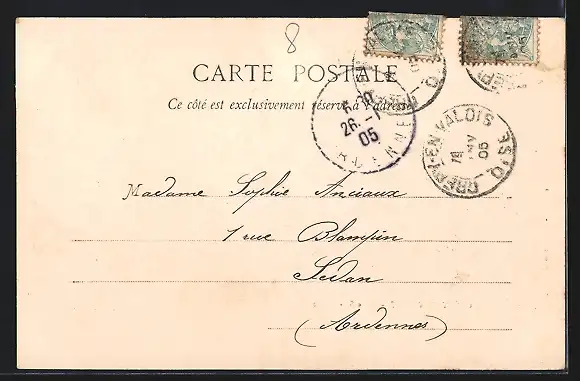 8
CARTE POSTALE
Ce côté est exclusivement réservé à l'adresse
6 30
26 - 1
05
ARDENNE
CRÉPY-EN-VALOIS
OISE
05
Madame Sophie Anciaux
1 rue Blampin
Sedan
(Ardennes)